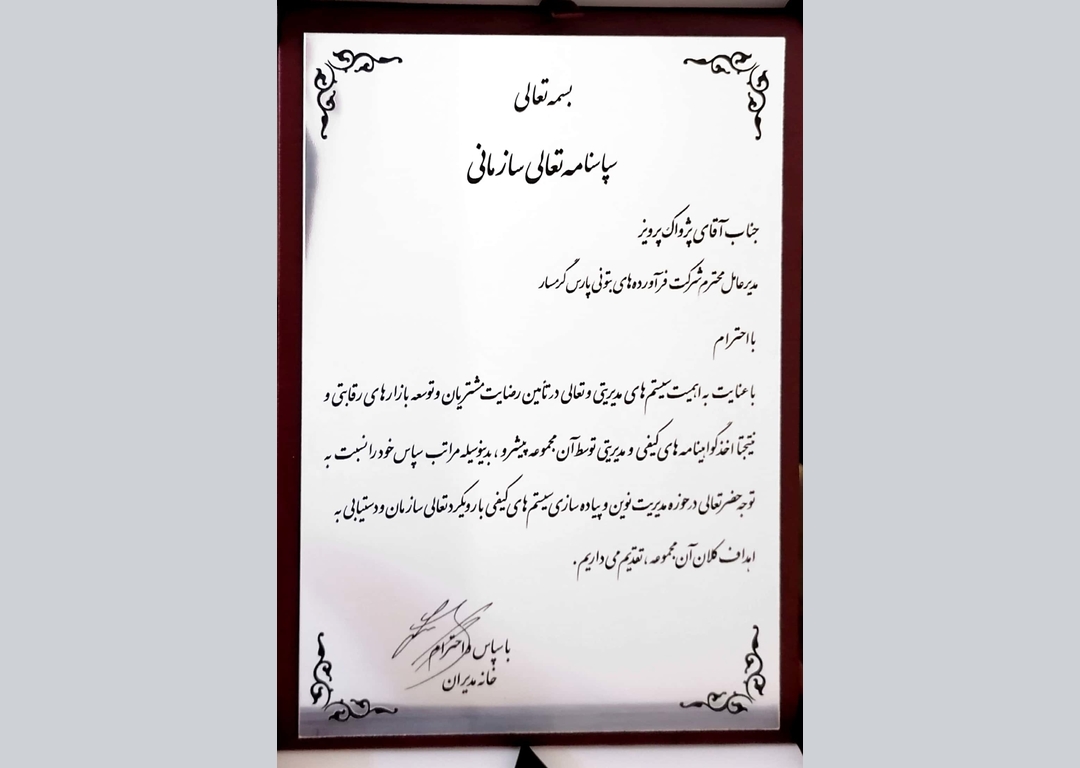 بسمه تعالی
سپاسنامه تعالی سازمانی
جناب آقای پژواک پرویز
مدیرعامل محترم شرکت فرآورده های بتونی پارس گرمسار
با احترام
با عنایت به اهمیت سیستم های مدیریتی و تعالی در تأمین رضایت مشتریان و توسعه بازارهای رقابتی و
نتیجتا اخذ گواهینامه های کیفی و مدیریتی توسط آن مجموعه پیشرو ، بدینوسیله مراتب سپاس خود را نسبت به
توجه حضرتعالی در حوزه مدیریت نوین و پیاده سازی سیستم های کیفی با رویکرد تعالی سازمان و دستیابی به
اهداف کلان آن مجموعه ، تقدیم می داریم .
با سپاس و احترام
خانه مدیران